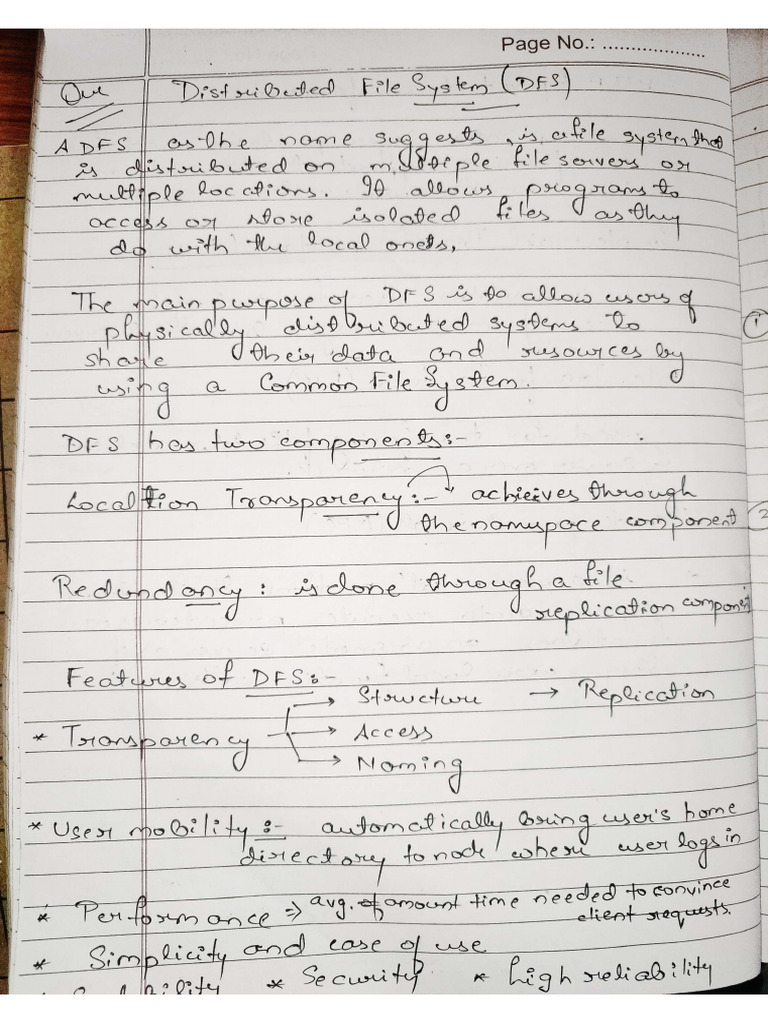 Page No.: ...................
Que Distributed File System (DFS)
A DFS as the name suggests, is a file system that
is distributed on multiple file servers or
multiple locations. It allows programs to
access or store isolated files as they
do with the local onets,
The main purpose of DFS is to allow users of
physically distributed systems to
share their data and resources by
using a Common File System.
1
DFS has two components:-
Location Transparency:- achieives through
the namespace component
2
Redundancy: is done through a file
replication component
Features of DFS:-
→ Structure → Replication
* Transparency → Access
→ Naming
* User mobility:- automatically bring user's home
directory to node where user logs in
* Performance ⇒ avg. of amount time needed to convince
client requests.
* Simplicity and ease of use
* Security * high reliability